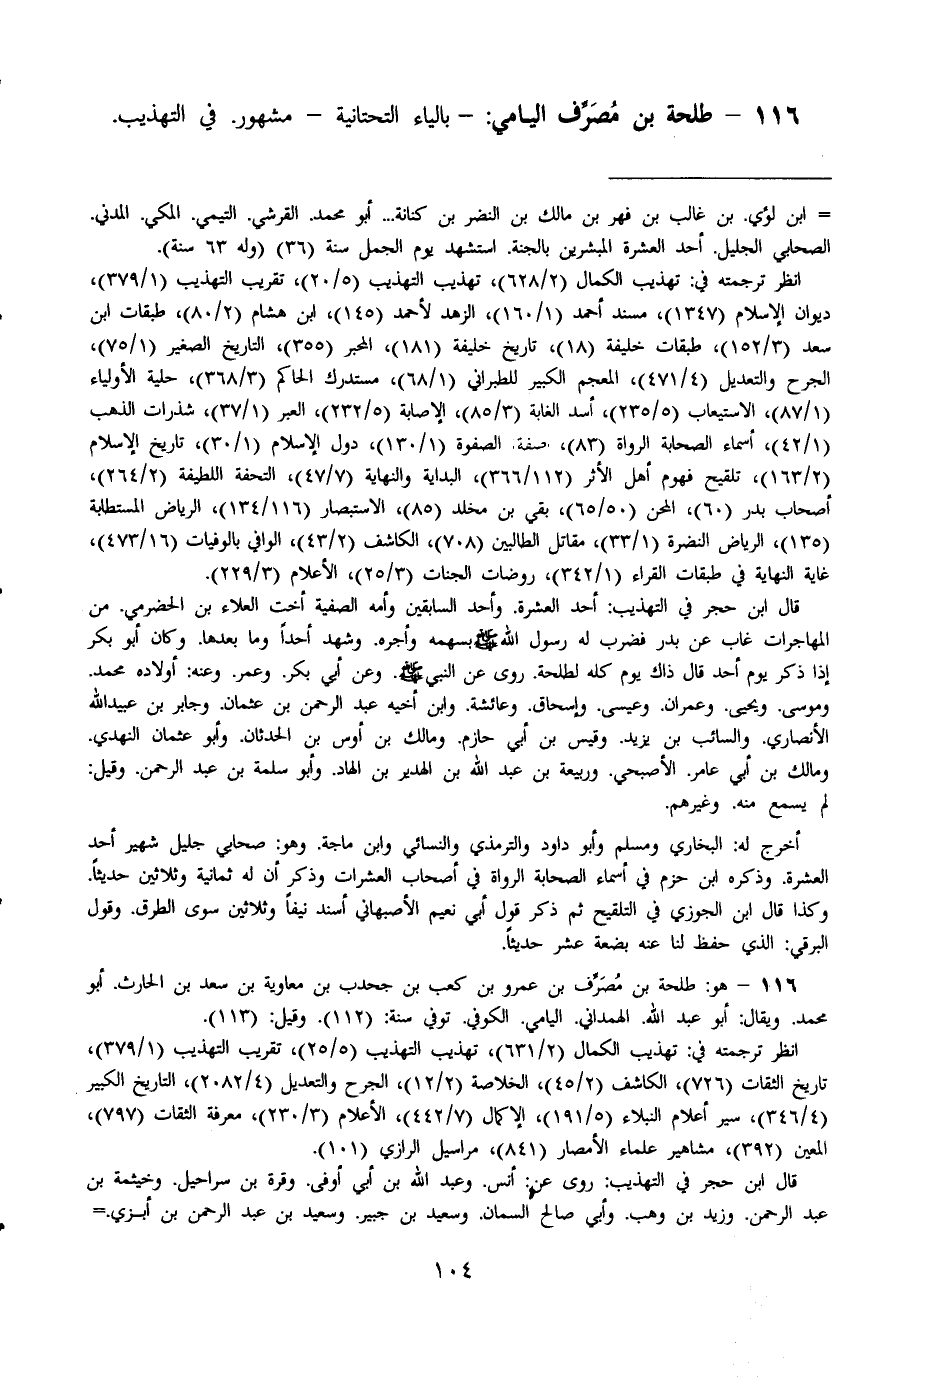 ١١٦ – طلحة بن مُصَرِّف اليـامي: – بالياء التحتانية – مشهور. في التهذيب.
= ابن لؤي. بن غالب بن فهر بن مالك بن النضر بن كنانة... أبو محمد. القرشي. التيمي. المكي. المدني.
الصحابي الجليل. أحد العشرة المبشرين بالجنة. استشهد يوم الجمل سنة (٣٦) (وله ٦٣ سنة).
انظر ترجمته في: تهذيب الكمال (٦٢٨/٢)، تهذيب التهذيب (٢٠/٥)، تقريب التهذيب (٣٧٩/١)،
ديوان الإسلام (١٣٤٧)، مسند أحمد (١٦٠/١)، الزهد لأحمد (١٤٥)، ابن هشام (٨٠/٢)، طبقات ابن
سعد (١٥٢/٣)، طبقات خليفة (١٨)، تاريخ خليفة (١٨١)، المحبر (٣٥٥)، التاريخ الصغير (٧٥/١)،
الجرح والتعديل (٤٧١/٤)، المعجم الكبير للطبراني (٦٨/١)، مستدرك الحاكم (٣٦٨/٣)، حلية الأولياء
(٨٧/١)، الاستيعاب (٢٣٥/٥)، أسد الغابة (٨٥/٣)، الإصابة (٢٣٢/٥)، العبر (٣٧/١)، شذرات الذهب
(٤٢/١)، أسماء الصحابة الرواة (٨٣)، صفة الصفوة (١٣٠/١)، دول الإسلام (٣٠/١)، تاريخ الإسلام
(١٦٣/٢)، تلقيح فهوم أهل الأثر (٣٦٦/١١٢)، البداية والنهاية (٤٧/٧)، التحفة اللطيفة (٢٦٤/٢)،
أصحاب بدر (٦٠)، المحن (٦٥/٥٠)، بقي بن مخلد (٨٥)، الاستبصار (١٣٤/١١٦)، الرياض المستطابة
(١٣٥)، الرياض النضرة (٣٣/١)، مقاتل الطالبين (٧٠٨)، الكاشف (٤٣/٢)، الوافي بالوفيات (٤٧٣/١٦)،
غاية النهاية في طبقات القراء (٣٤٢/١)، روضات الجنات (٢٥/٣)، الأعلام (٢٢٩/٣).
قال ابن حجر في التهذيب: أحد العشرة. وأحد السابقين وأمه الصفية أخت العلاء بن الحضرمي. من
المهاجرات غاب عن بدر فضرب له رسول الله ﷺ بسهمه وأجره. وشهد أحداً وما بعدها. وكان أبو بكر
إذا ذكر يوم أحد قال ذاك يوم كله لطلحة. روى عن النبي ﷺ. وعن أبي بكر. وعمر. وعنه: أولاده محمد.
وموسى. ويحيى. وعمران. وعيسى. وإسحاق. وعائشة. وابن أخيه عبد الرحمن بن عثمان. وجابر بن عبيدالله
الأنصاري. والسائب بن يزيد. وقيس بن أبي حازم. ومالك بن أوس بن الحدثان. وأبو عثمان النهدي.
ومالك بن أبي عامر. الأصبحي. وربيعة بن عبد الله بن الهدير بن الهاد. وأبو سلمة بن عبد الرحمن. وقيل:
لم يسمع منه. وغيرهم.
أخرج له: البخاري ومسلم وأبو داود والترمذي والنسائي وابن ماجة. وهو: صحابي جليل شهير أحد
العشرة. وذكره ابن حزم في أسماء الصحابة الرواة في أصحاب العشرات وذكر أن له ثمانية وثلاثين حديثاً.
وكذا قال ابن الجوزي في التلقيح ثم ذكر قول أبي نعيم الأصبهاني أسند نيفاً وثلاثين سوى الطرق. وقول
البرقي: الذي حفظ لنا عنه بضعة عشر حديثاً.
١١٦ – هو: طلحة بن مُصَرِّف بن عمرو بن كعب بن جحدب بن معاوية بن سعد بن الحارث. أبو
محمد. ويقال: أبو عبد الله. الهمداني. اليامي. الكوفي. توفي سنة: (١١٢). وقيل: (١١٣).
انظر ترجمته في: تهذيب الكمال (٦٣١/٢)، تهذيب التهذيب (٢٥/٥)، تقريب التهذيب (٣٧٩/١)،
تاريخ الثقات (٧٢٦)، الكاشف (٤٥/٢)، الخلاصة (١٢/٢)، الجرح والتعديل (٢٠٨٢/٤)، التاريخ الكبير
(٣٤٦/٤)، سير أعلام النبلاء (١٩١/٥)، الإكمال (٤٤٢/٧)، الأعلام (٢٣٠/٣)، معرفة الثقات (٧٩٧)،
المعين (٣٩٢)، مشاهير علماء الأمصار (٨٤١)، مراسيل الرازي (١٠١).
قال ابن حجر في التهذيب: روى عن: أنس. وعبد الله بن أبي أوفى. وقرة بن سراحيل. وخيثمة بن
عبد الرحمن. وزيد بن وهب. وأبي صالح السمان. وسعيد بن جبير. وسعيد بن عبد الرحمن بن أبـزي.=
١٠٤